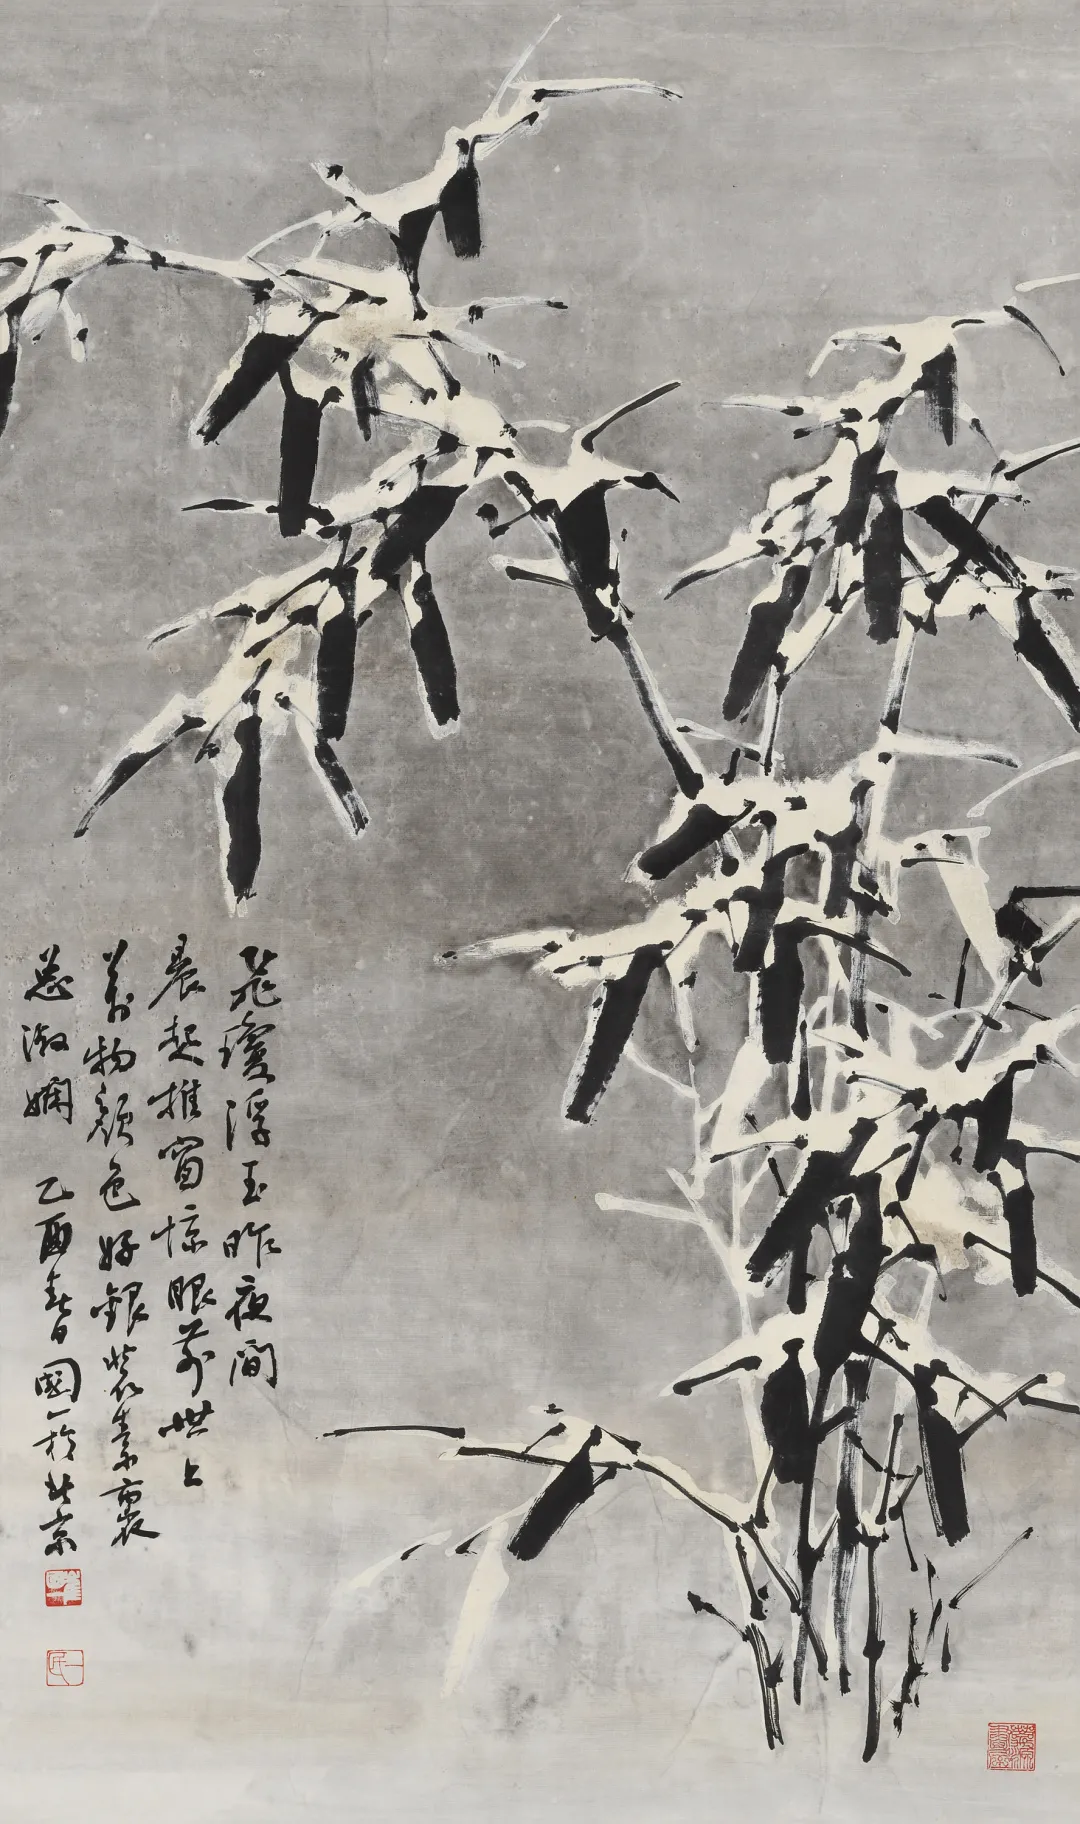 飛瓊浮玉昨夜間
晨起推窗惊眼前世上
萬物顏色好銀裝素裹
總淑嫻 乙酉春日國一於北京